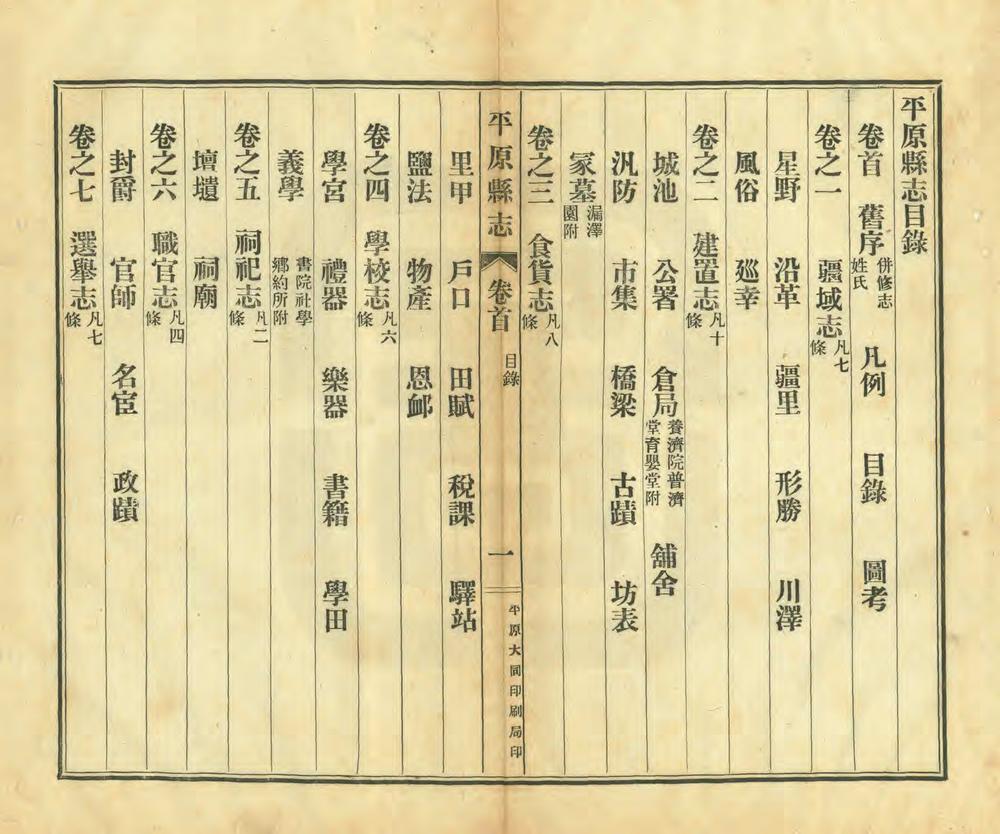 平原縣志目錄
卷首 舊序併修志姓氏 凡例 目錄 圖考
卷之一 疆域志凡七條
星野 沿革 疆里 形勝 川澤
風俗 廵幸
卷之二 建置志凡十條
城池 公署 倉局養濟院普濟堂育嬰堂附 舖舍
汎防 市集 橋梁 古蹟 坊表
冢墓漏澤園附
卷之三 食貨志凡八條
平原縣志 卷首 目錄 一 平原大同印刷局印
里甲 戶口 田賦 稅課 驛站
鹽法 物產 恩卹
卷之四 學校志凡六條
學宮 禮器 樂器 書籍 學田
義學書院社學鄉約所附
卷之五 祠祀志凡二條
壇壝 祠廟
卷之六 職官志凡四條
封爵 官師 名宦 政蹟
卷之七 選舉志凡七條